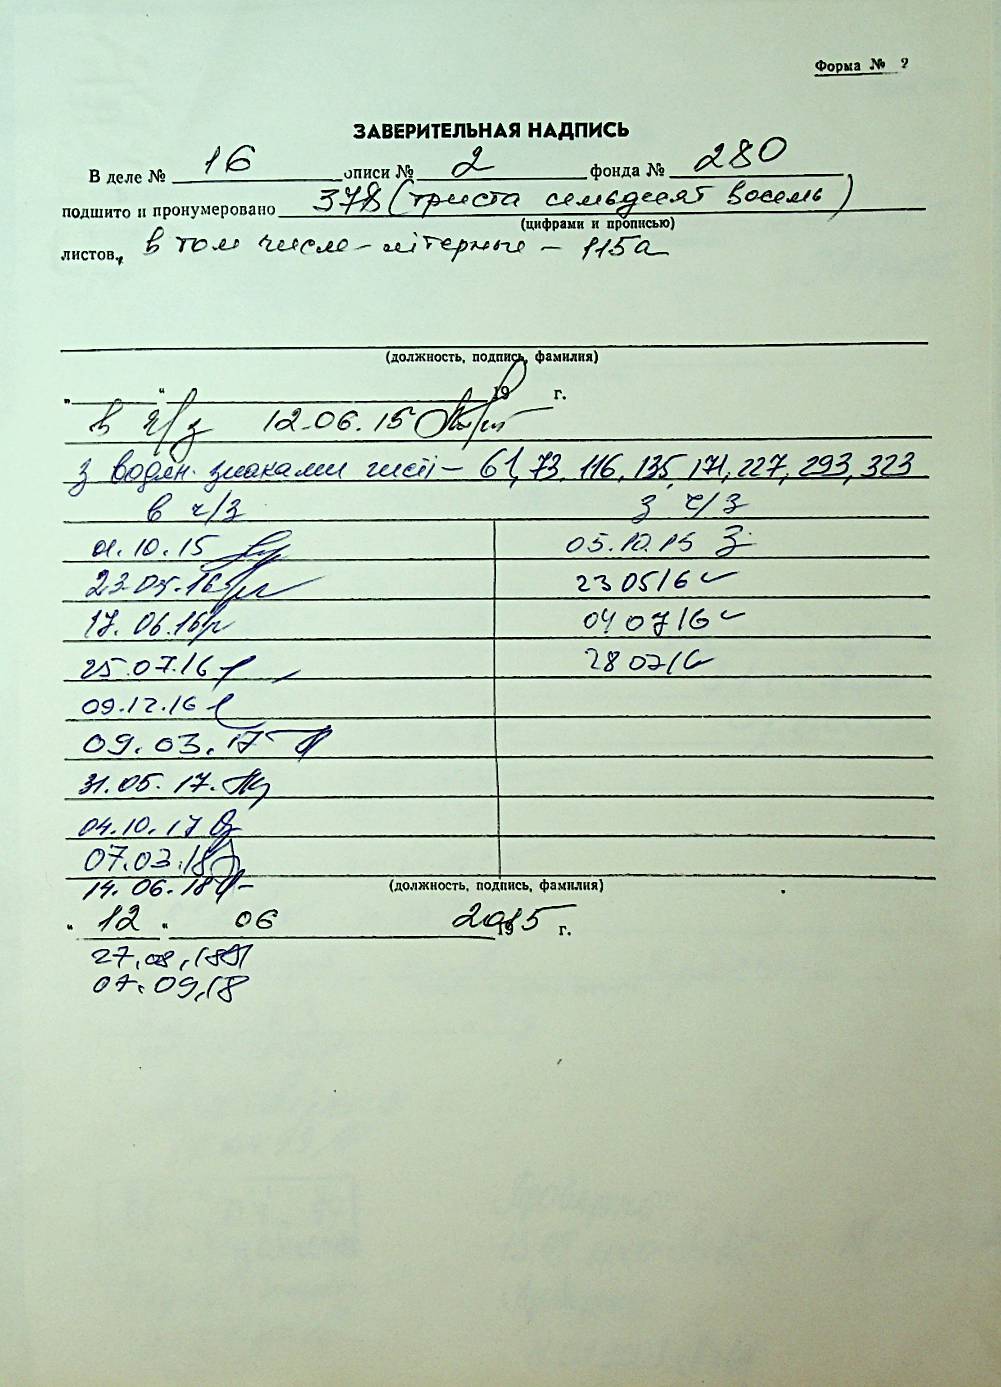 Форма № 2
ЗАВЕРИТЕЛЬНАЯ НАДПИСЬ
В деле № 16 описи № 2 фонда № 280,
подшито и пронумеровано 378 (триста семьдесят восемь)
(цифрами и прописью)
листов, в том числе - літерные - 115а
(должность, подпись, фамилия)
„ “ 19 г.
в ч/з 12.06.15
з водян. знаками листі - 61, 73, 116, 135, 171, 227, 293, 323
в ч/з з ч/з
01.10.15 05.10.15
23.05.16 23 05 16
17.06.16 04 07 16
25.07.16 28 07 16
09.12.16
09.03.17
31.05.17.
04.10.17
07.03.18
14.06.18
(должность, подпись, фамилия)
„ 12 “ 06 2015 19 г.
27.08.18
07.09.18